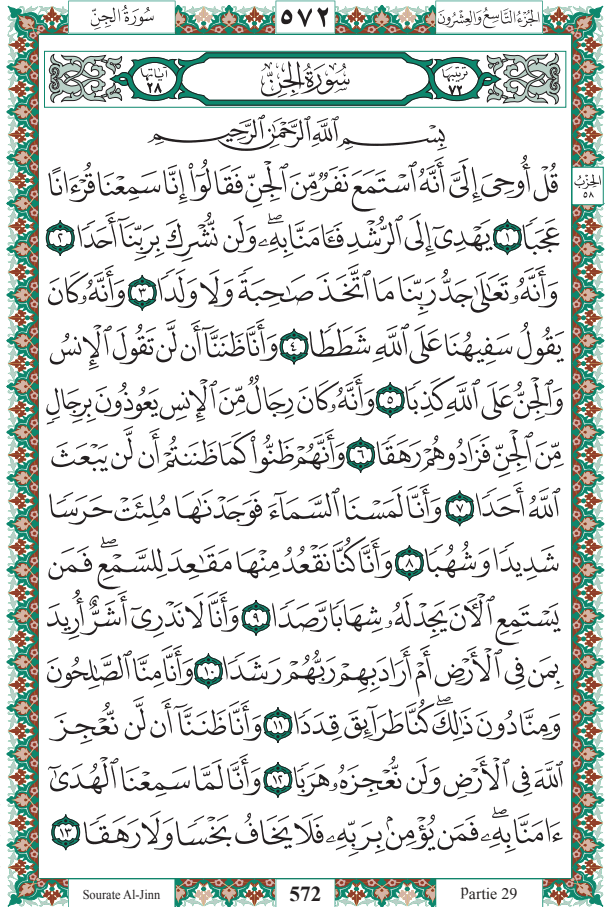 سُورَةُ الجِنِّ ٥٧٢ الجُزْءُ التَّاسِعُ وَالعِشْرُونَ
تَرْتِيبُهَا ٧٢ سُورَةُ الجِنِّ آيَاتُهَا ٢٨
بِسْمِ ٱللَّهِ ٱلرَّحْمَٰنِ ٱلرَّحِيمِ
قُلْ أُوحِىَ إِلَىَّ أَنَّهُ ٱسْتَمَعَ نَفَرٌ مِّنَ ٱلْجِنِّ فَقَالُوٓا۟ إِنَّا سَمِعْنَا قُرْءَانًا
الحِزْبُ ٥٨
عَجَبًا ١ يَهْدِىٓ إِلَى ٱلرُّشْدِ فَـَٔامَنَّا بِهِۦ ۖ وَلَن نُّشْرِكَ بِرَبِّنَآ أَحَدًا ٢
وَأَنَّهُۥ تَعَٰلَىٰ جَدُّ رَبِّنَا مَا ٱتَّخَذَ صَٰحِبَةً وَلَا وَلَدًا ٣ وَأَنَّهُۥ كَانَ
يَقُولُ سَفِيهُنَا عَلَى ٱللَّهِ شَطَطًا ٤ وَأَنَّا ظَنَنَّآ أَن لَّن تَقُولَ ٱلْإِنسُ
وَٱلْجِنُّ عَلَى ٱللَّهِ كَذِبًا ٥ وَأَنَّهُۥ كَانَ رِجَالٌ مِّنَ ٱلْإِنسِ يَعُوذُونَ بِرِجَالٍ
مِّنَ ٱلْجِنِّ فَزَادُوهُمْ رَهَقًا ٦ وَأَنَّهُمْ ظَنُّوا۟ كَمَا ظَنَنتُمْ أَن لَّن يَبْعَثَ
ٱللَّهُ أَحَدًا ٧ وَأَنَّا لَمَسْنَا ٱلسَّمَآءَ فَوَجَدْنَٰهَا مُلِئَتْ حَرَسًا
شَدِيدًا وَشُهُبًا ٨ وَأَنَّا كُنَّا نَقْعُدُ مِنْهَا مَقَٰعِدَ لِلسَّمْعِ ۖ فَمَن
يَسْتَمِعِ ٱلْـَٔانَ يَجِدْ لَهُۥ شِهَابًا رَّصَدًا ٩ وَأَنَّا لَا نَدْرِىٓ أَشَرٌّ أُرِيدَ
بِمَن فِى ٱلْأَرْضِ أَمْ أَرَادَ بِهِمْ رَبُّهُمْ رَشَدًا ١٠ وَأَنَّا مِنَّا ٱلصَّٰلِحُونَ
وَمِنَّا دُونَ ذَٰلِكَ ۖ كُنَّا طَرَآئِقَ قِدَدًا ١١ وَأَنَّا ظَنَنَّآ أَن لَّن نُّعْجِزَ
ٱللَّهَ فِى ٱلْأَرْضِ وَلَن نُّعْجِزَهُۥ هَرَبًا ١٢ وَأَنَّا لَمَّا سَمِعْنَا ٱلْهُدَىٰٓ
ءَامَنَّا بِهِۦ ۖ فَمَن يُؤْمِنۢ بِرَبِّهِۦ فَلَا يَخَافُ بَخْسًا وَلَا رَهَقًا ١٣
Sourate Al-Jinn 572 Partie 29